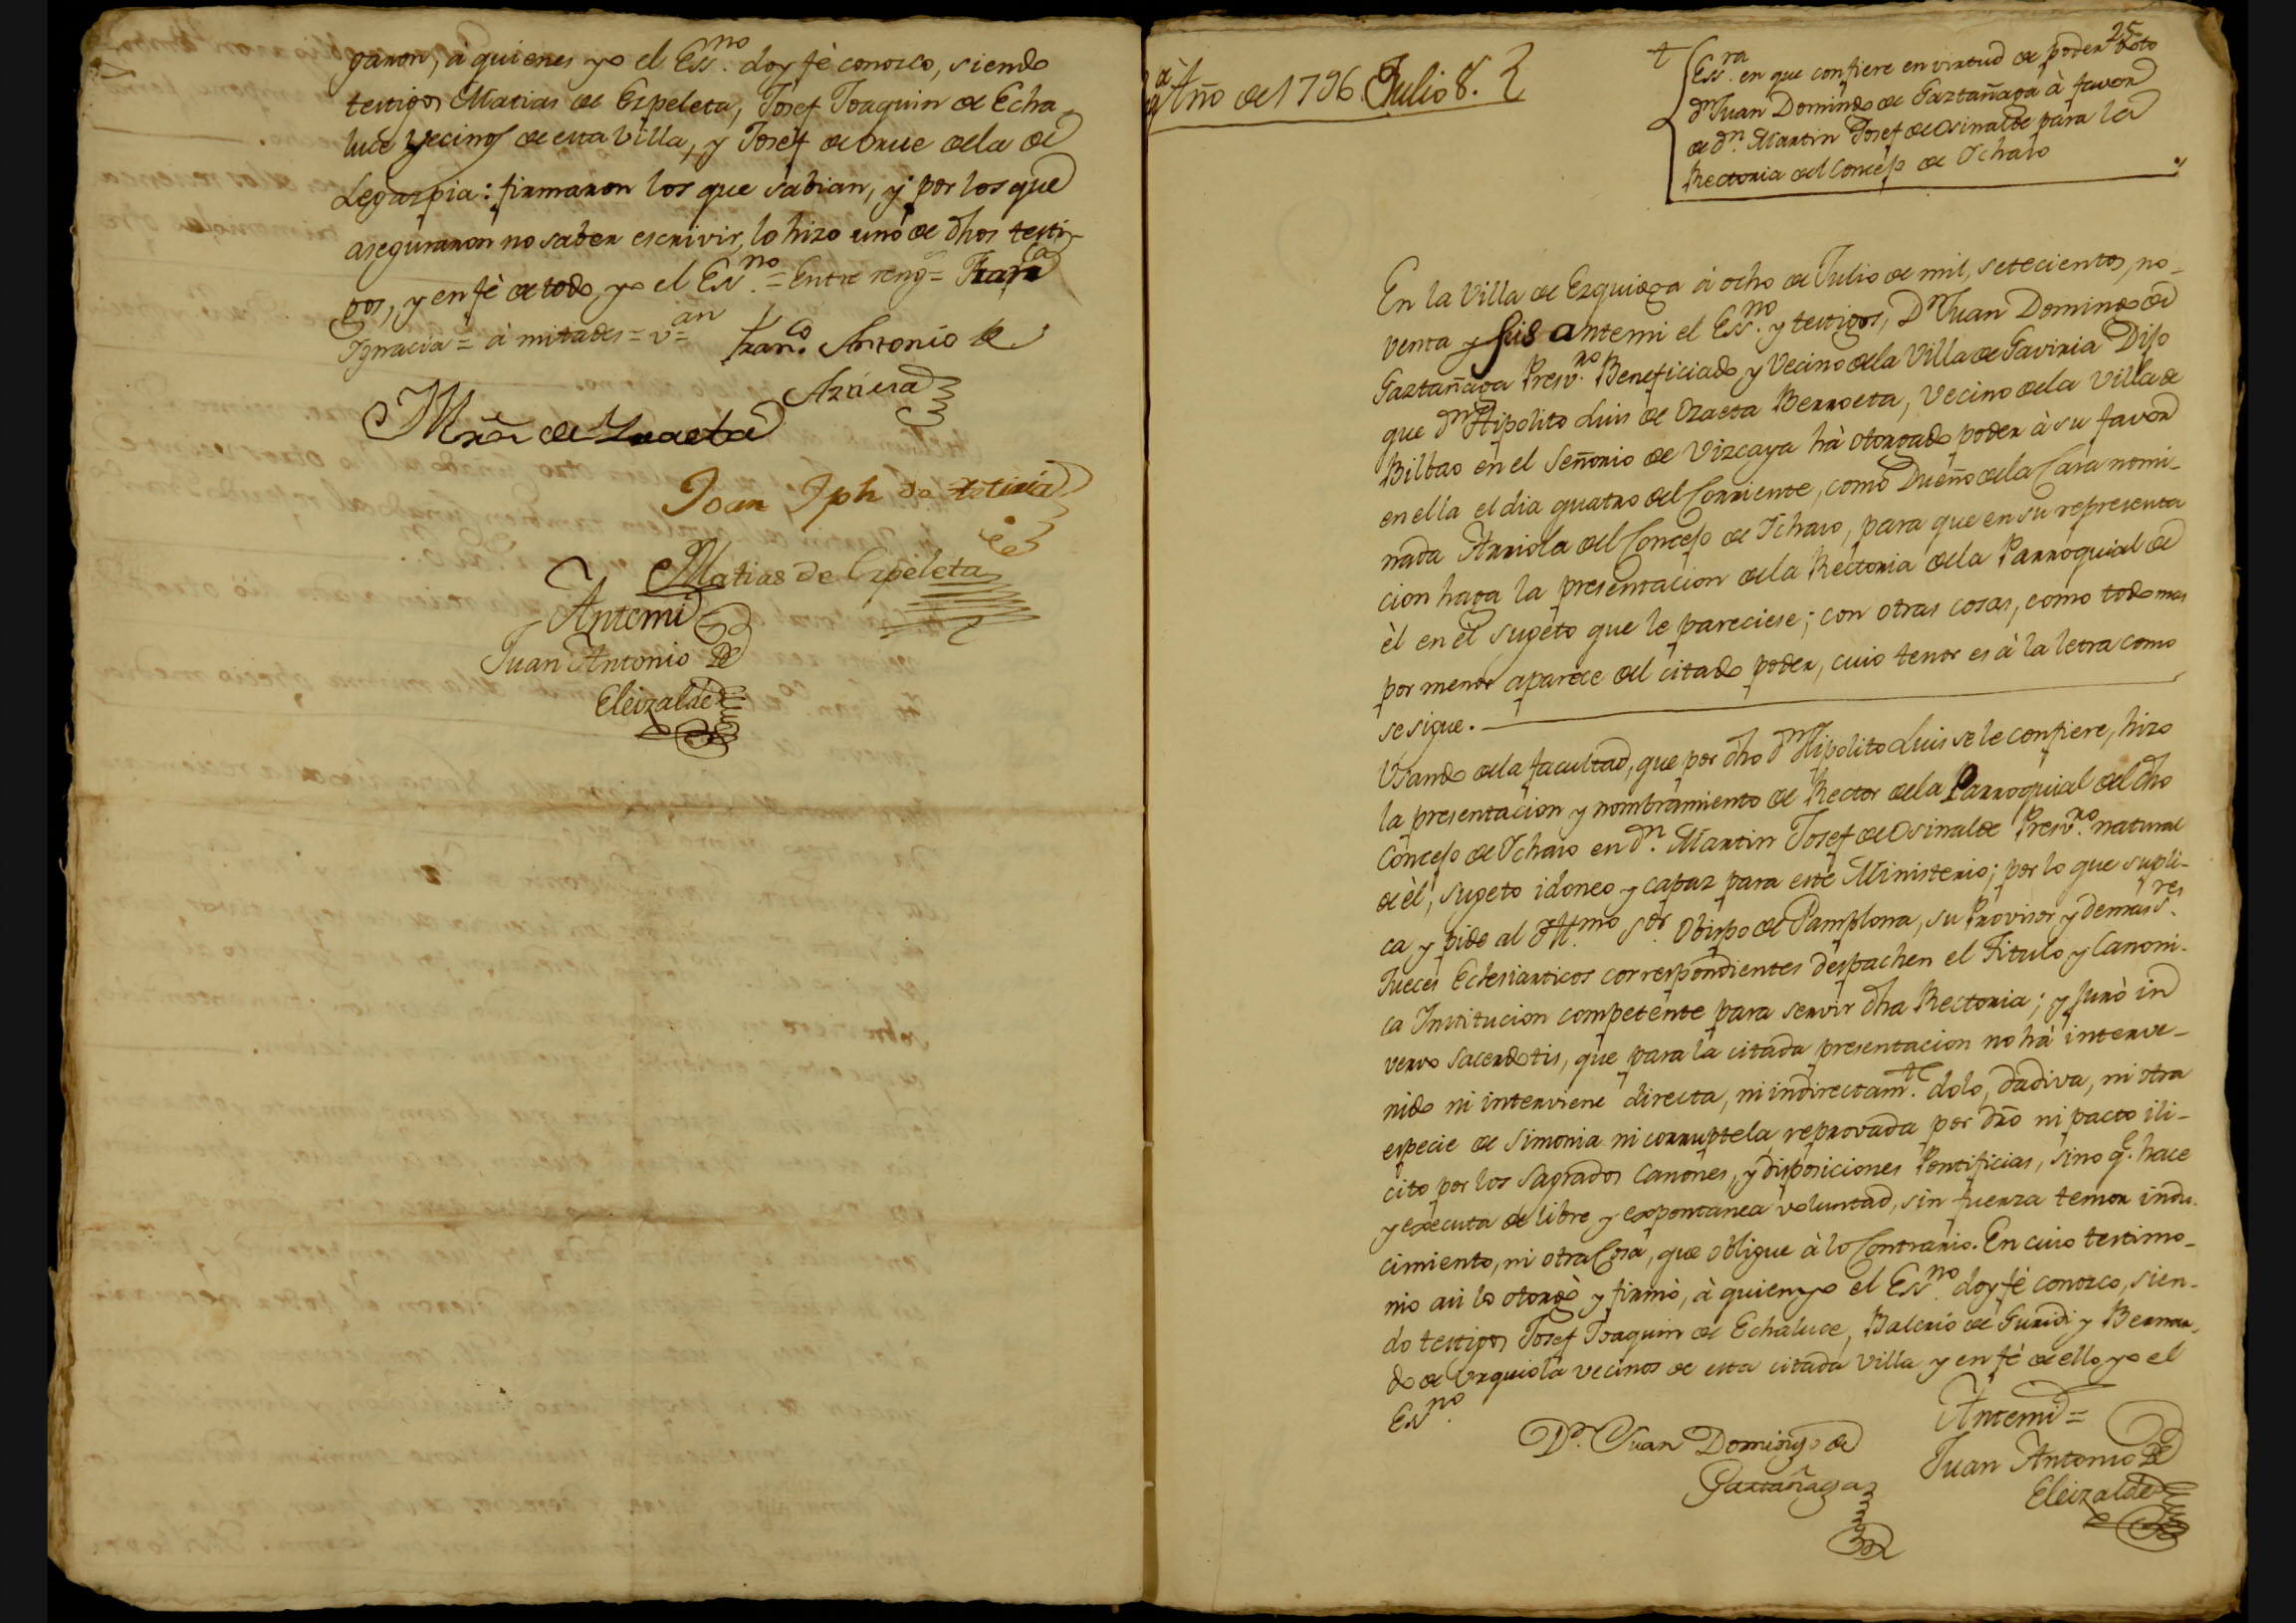 garon, à quienes yo el Ess.no doy fè conozco, siendo
testigos Matias de Ezpeleta, Josef Joaquin de Echa
luce vecinos de esta Villa, y Josef de Orue de la de
Legazpia: firmaron los que sabian, y por los que
aseguraron no saber escrivir, lo hizo uno de dhos testi-
gos, y en fè de todo, yo el Ess.no = Entre reng.s = Fran.ca
Ygnacia = à mitades = v.an =
Fran.co Antonio de
Azcuea
Mrñ de Zuaeta
Joan Jph de
Matias de Ezpeleta
Antemi
Juan Antonio de
Eleizalde
Año de 1796. Julio 8.
25
t
Ess.ra en que confiere en virtud de poder voto
Dn Juan Domingo de Gaztañaga à favor
de Dn. Martin Josef de Osinalde para la
Rectoria del Concejo de Ychaso
En la Villa de Ezquioga à ocho de Julio de mil, setecientos, no-
venta y seis antemi el Ess.no y testigos, Dn Juan Domingo de
Gaztañaga Presv.ro Beneficiado y Vecino de la Villa de Gaviria Dijo
que Dn Hipolito Luis de Ozaeta Berroeta, Vecino de la Villa de
Bilbao en el Señorio de Vizcaya hà otorgado poder à su favor
en ella el dia quatro del Corriente, como Dueño de la Casa nomi-
nada Arriola del Concejo de Ychaso, para que en su representa
cion haga la presentacion de la Rectoria de la Parroquial de
èl en el sugeto que le pareciese; con otras cosas, como todo mas
por menor aparece del citado poder, cuio tenor es à la letra como
se sigue.
Usando de la facultad, que por dho Dn Hipolito Luis se le confiere, hizo
la presentacion y nombramiento de Rector de la Parroquial del dho
Concejo de Ychaso en Dn. Martin Josef de Osinalde Presv.ro natural
de èl, sugeto idoneo y capaz para este Ministerio; por lo que supli-
ca y pide al Yll.mo S.or Obispo de Pamplona, su Provisor y demas S.res
Jueces Eclesiasticos correspondientes despachen el Titulo y Canoni-
ca Institucion competente para servir dha Rectoria; y jurò in
vervo sacerdotis, que para la citada presentacion no hà interve-
nido ni interviene directa, ni indirectam.te dolo, dadiva, ni otra
especie de simonia ni corruptela, reprovada por dro ni pacto ili-
cito por los Sagrados Canones, y disposiciones Pontificias, sino q.e hace
y executa de libre y expontanea voluntad, sin fuerza temor indu-
cimiento, ni otra Cosa, que obligue à lo Contrario. En cuio testimo-
nio asi lo otorgò y firmò, à quien yo el Ess.no doy fè conozco, sien-
do testigos Josef Joaquin de Echaluce, Balerio de Guridi y Bernar-
do de Urquiola vecinos de esta citada Villa y en fè de ello yo el
Ess.no
Dn. Juan Domingo de
Gaztañaga
Antemi =
Juan Antonio de
Eleizalde